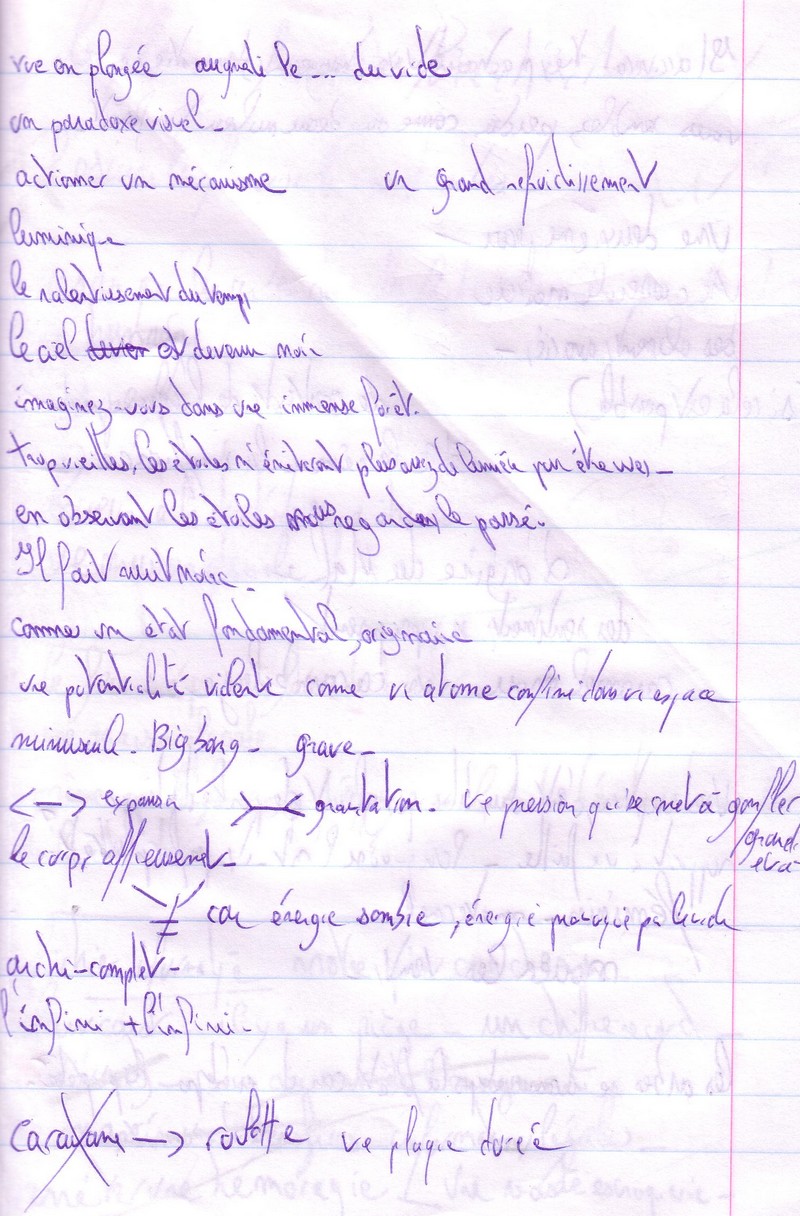 vue en plongée du vide
un paradoxe visuel -
actionner un mécanisme un grand refroidissement
luminique
le ralentissement du temps
le ciel est devenu noir
imaginez-vous dans une immense forêt.
trop vieilles, les étoiles n'émiteront plus assez de lumière pour être vues -
en observant les étoiles nous regardons le passé.
Il fait nuit noire.
comme un état fondamental, originaire
une potentialité violente comme un atome confiné dans un espace
minuscule - Big bang - grave -
<—> expansion >—< gravitation - une pression qui se met à gonfler
le corps
≠ car énergie sombre, énergie provoquée par le vide
archi-complet -
l'infini + l'infini -
Caravane —> roulotte une plaque dorée